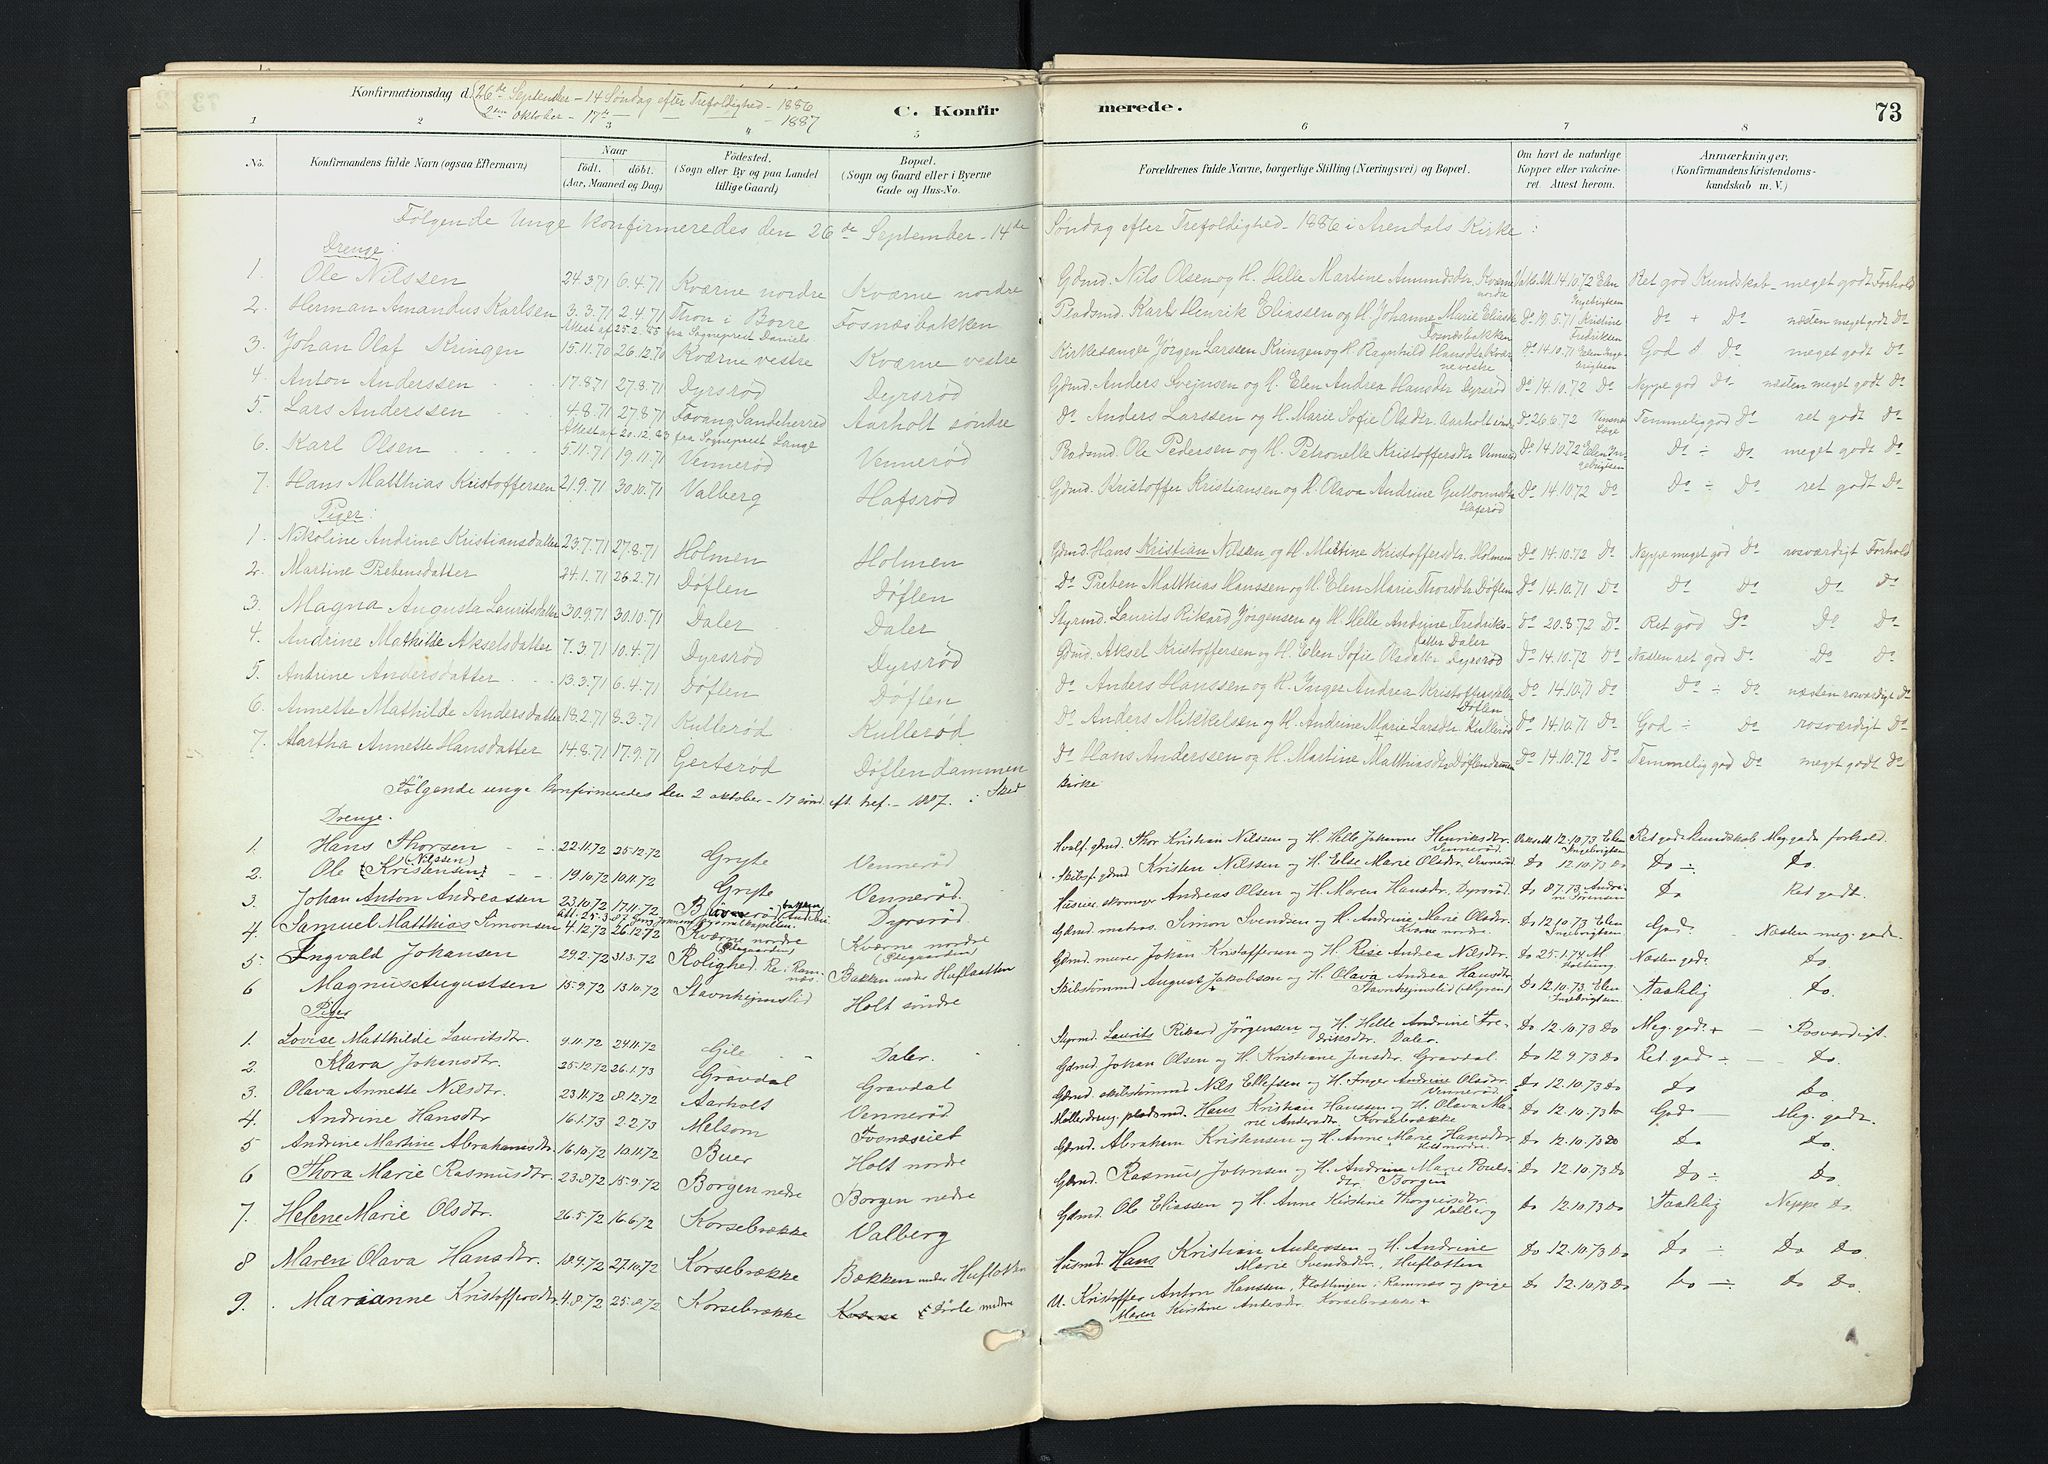 Konfirmationsdag d. 26de September - 14 Søndag efter Trefoldighed - 1886
2den Oktober - 17de - 1887
C. Konfir merede. 73
1 2 3 4 5 6 7 8
No. Konfirmandens fulde Navn (ogsaa Efternavn) Naar födt. döbt. (Aar, Maaned og Dag) Födested. (Sogn eller By og paa Landet tillige Gaard) Bopæl. (Sogn og Gaard eller i Byerne Gade og Hus-No. Forældrenes fulde Navne, borgerlige Stilling (Næringsvei) og Bopæl. Om havt de naturlige Kopper eller vakcineret. Attest herom. Anmærkninger. (Konfirmandens Kristendomskundskab m. V.)
Følgende Unge konfirmeredes den 26de September - 14de Søndag efter Trefoldighed - 1886 i Arendals Kirke :
Drenge:
1. Ole Nilssen 24.3.71 6.4.71 Kværne nordre Kværne nordre Gdmd. Nils Olsen og H. Helle Martine Amundsdtr. Kværne nordre 14.10.72 Elen Ingebrigtsen Ret god Kundskab - meget godt Forhold
2. Herman Amandus Karlsen 3.3.71 2.4.71 Thon i Borre Fosnæsbakken Pladsmd. Karl Henrik Eliassen og H. Johanne Marie Fosnæsbakken Do 19.5.71 Kristine Fredriksen Do + Do næsten meget godt Do
Attest af 25.2.85 fra Sogneprest Daniels
3. Johan Olaf Kringen 15.11.70 26.12.70 Kværne vestre Kværne vestre Kirkesanger Jörgen Larssen Kringen og H. Ragnhild Hansdtr. Kværne vestre Do 14.10.71 Elen Ingebrigtsen God Do meget godt Do
4. Anton Anderssen 17.8.71 27.8.71 Dyrsrød Dyrsrød Gdmd. Anders Svejnsen og H. Elen Andrea Hansdtr. Dyrsrød Do 14.10.72 Do Neppe god Do næsten meget godt Do
5. Lars Anderssen 4.8.71 27.8.71 Fævang Sandeherred Aarholt söndre Do Anders Larssen og H. Marie Sofie Olsdtr. Aarholt Do 26.6.72 Temmelig god Do ret godt Do
Attest af 20.12.83 fra Sogneprest Lange
6. Karl Olsen 5.11.71 19.11.71 Vennerød Vennerød Pladsmd. Ole Pedersen og H. Petronelle Kristoffersdtr. Vennerød Do 14.10.72 Elen Ingebrigtsen Do ÷ Do meget godt Do
7. Hans Matthias Kristoffersen 21.9.71 30.10.71 Valberg Hafsrød Gdmd. Kristoffer Kristiansen og H. Olava Andrine Guttormsdtr. Hafsrød Do 14.10.72 Do Do ÷ Do ret godt Do
Piger:
1. Nikoline Andrine Kristiansdatter 23.7.71 27.8.71 Holmen Holmen Gdmd. Hans Kristian Nilsen og H. Martine Kristoffersdtr. Holmen Do 14.10.72 Do Neppe meget god Do rosværdigt Forhold
2. Martine Prebensdatter 24.1.71 26.2.71 Døflen Døflen Do Preben Matthias Hanssen og H. Elen Marie Thorsdtr. Døflen Do 14.10.71 Do Do Do Do Do
3. Magna Augusta Lauritsdatter 30.9.71 30.10.71 Daler Daler Styrmd. Laurits Rikard Jörgensen og H. Helle Andrine Fredriksdatter Daler Do 20.8.72 Do Ret god Do Do Do
4. Andrine Mathilde Akselsdatter 7.3.71 10.4.71 Dyrsrød Dyrsrød Gdmd. Aksel Kristoffersen og H. Elen Sofie Olsdatter Dyrsrød Do 14.10.72 Do Næsten ret god Do Do Do
5. Andrine Andersdatter 13.3.71 6.4.71 Døflen Døflen Do Anders Hanssen og H. Inger Andrea Kristoffersdatter Døflen Do 14.10.71 Do Do ÷ Do næsten rosværdigt Do
6. Annette Mathilde Andersdatter 18.2.71 8.3.71 Kullerød Kullerød Do Anders Mikkelsen og H. Andrine Marie Larsdtr. Kullerød Do 14.10.71 Do God ÷ Do rosværdigt Do
7. Martha Annette Hansdatter 14.8.71 17.9.71 Gertsrød Døflen dammen Do Hans Anderssen og H. Martine Matthiasdtr. Døflendammen Do 14.10.72 Do Temmelig god Do meget godt Do
Følgende unge konfirmeredes den 2 oktober - 17 sönd. eft. tref. - 1887. i Skee kirke
Drenge.
1. Hans Thorsen 22.11.72 25.12.72 Gryte Vennerød Hvalf. gdmd. Thor Kristian Nilssen og H. Helle Johanne Henriksdtr. Vennerød 12.10.73 Elen Ingebrigtsen Ret god kundskab Meg. godt forhold.
2. Ole Kristensen (Nilssen) 19.10.72 10.11.72 Gryte Vennerød. Skibsf. gdmd. Kristen Nilssen og H. Else Marie Olsdtr. Vennerød Do 12.10.73 Do Do ÷ Do.
3. Johan Anton Andreassen 23.10.72 17.11.72 Dyrsrød. Andreas Olsen og H. Maren Hansdtr. Dyrsrød. Do 8.7.73 Do Ret godt.
4. Samuel Matthias Simonsen 4.12.72 26.12.72 Kværne nordre Kværne nordre Gdmd. matros. Simon Svendsen og H. Andrine Marie Olsdtr. Kværne nordre. Do 12.10.73 Elen Ingebrigtsen God. Næsten meg. godt.
5. Ingvald Johansen 29.2.72 31.3.72 Rolighed. Re i Ramnæs Bakken under Huflaatten Gdmd. murer Johan Kristoffersen og H. Andrea Nilsdtr. Do 25.1.74 M Holtung Næsten god. Do.
6 Magnus Augustsen 15.9.72 13.10.72 Stavnhejmslid Holt söndre Skibstömmd. August Jakobsen og H. Olava Andrea Hansdtr. Stavnhejmslid (Myren) Do 12.10.73 Elen Ingebrigtsen Taalelig Do.
Piger
1. Lovise Matthilde Lauritsdtr. 9.11.72 24.11.72 Gile Daler. Styrmd. Laurits Rikard Jörgensen og H. Helle Andrine Fredriksdtr. Daler. Do 12.10.73 Do Meg. god + - Rosværdigt.
2. Klara Johansdtr. 25.12.72 26.1.73 Gravdal Gravdal Gdmd. Johan Olsen og H. Kristiane Jensdtr. Gravdal. Do 12.9.73 Do Ret god ÷ - Do.
3. Olava Annette Nilsdtr. 23.11.72 8.12.72 Aarholt Vennerød. Gdmd. skibstömmd Nils Ellefsen og H. Inger Andrine Olsdtr. Vennerød. Do 12.10.73 Do Do Do.
4. Andrine Hansdtr 16.1.73 2.2.73 Melsom Fosnæseiet Pladsmd. Hans Kristian Hanssen og H. Olava Marie Andersdtr. Korsebrække Do 12.10.73 Do God - Meg. godt.
5 Andrine Martine Abrahamsdtr. 16.10.72 10.11.72 Buer Holt nordre Gdmd. Abraham Kristensen og H. Anne Marie Hansdtr Holt nordre. Do 12.10.73 Do Do Do.
6 Thora Marie Rasmusdtr. 23.8.72 15.9.72 Borgen nedre Borgen nedre Gdmd. Rasmus Johnsen og H. Andrine Marie Poulsdtr. Borgen Do 12.10.73 Do Do ÷ Do.
7. Helene Marie Olsdtr. 26.5.72 16.6.72 Korsebrække Valberg Gdmd. Ole Eliassen og H. Anne Kirstine Thorguisdtr. Valberg Do 12.10.73 Do Taalelig Neppe Do.
8 Maren Olava Hansdtr. 18.4.72 27.10.72 Korsebrække Bakken under Huflotten Husmd. Hans Kristian Anderssen og H. Andrine Marie Svendsdtr, Huflotten Do 12.10.73 Do Do ÷ Do Do.
9. Marianne Kristoffersdtr. 4.8.72 25.8.72 Korsebrække nedre U. Kristoffer Anton Hanssen, Klottingen i Ramnæs og pige Maren Kirstine Andersdtr Korsebrække Do 12.10.73 Do Do ÷ Do Do.